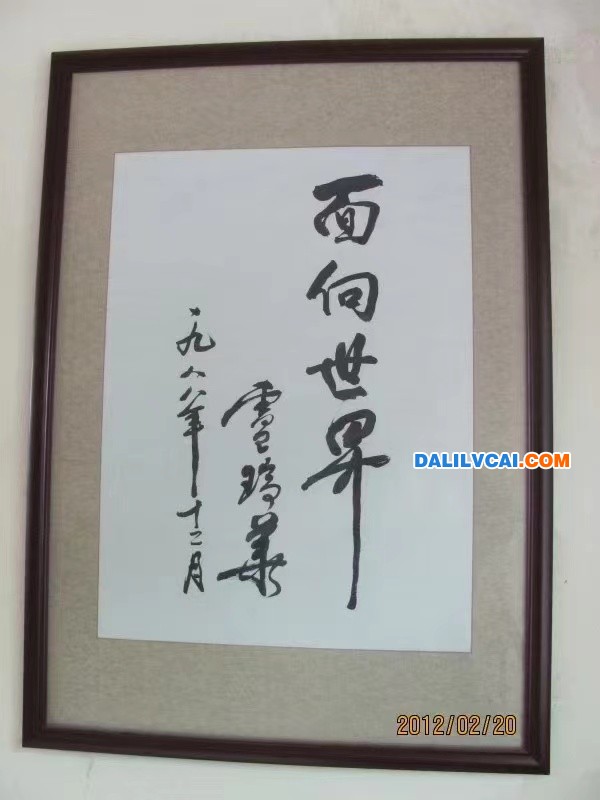 面向世界
一九八八年十二月
DALILVCAI.COM
2012/02/20